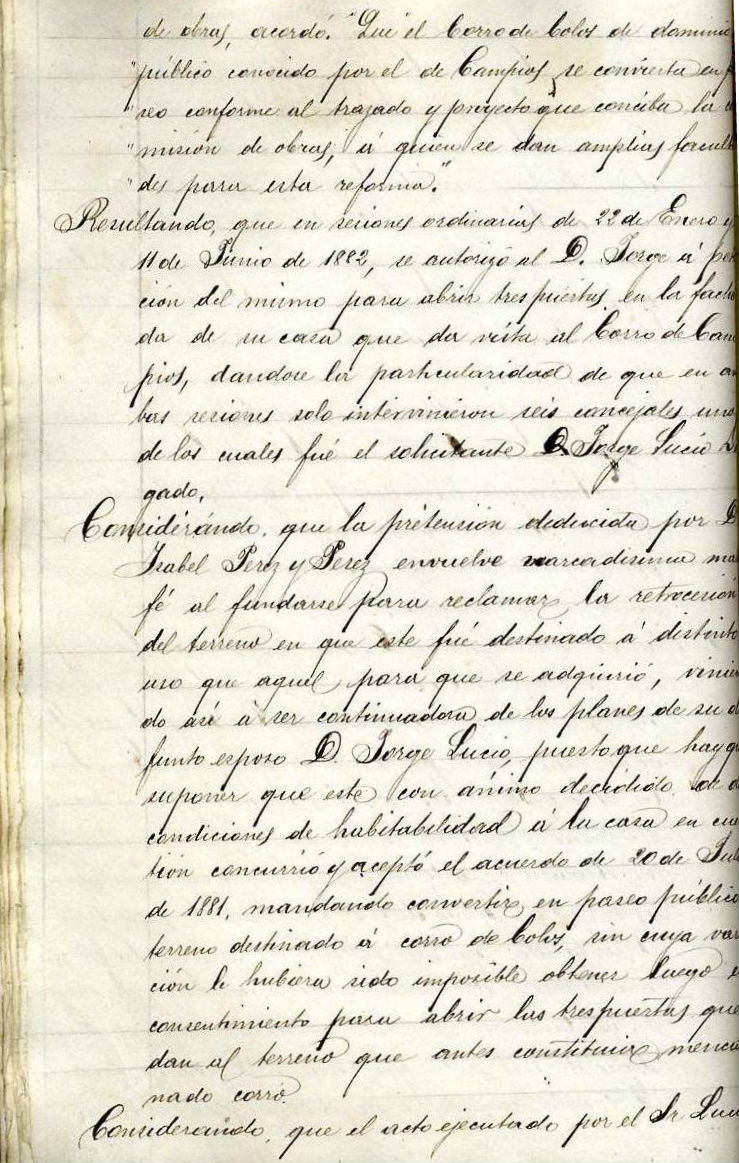 de obras, acordó. "Que el Corro de bolos de dominio
"público conocido por el de Campios, se convierta en p
"seo conforme al trazado y proyecto que conciba la c
"misión de obras, á quien se dan amplias facult
"des para esta reforma."
Resultando, que en sesiones ordinarias de 22 de Enero y
11 de Junio de 1882, se autorizó al D. Jorge á peti
ción del mismo para abrir tres puertas, en la facha
da de su casa que da vista al Corro de Cam
pios, dandose la particularidad de que en am
bas sesiones solo intervinieron seis concejales uno
de los cuales fué el solicitante D. Jorge Lucio D
gado.
Considerando, que la pretensión deducida por D
Isabel Perez y Perez envuelve marcadisima ma
fé al fundarse para reclamar la retrocesión
del terreno en que este fué destinado á distinto
uso que aquel para que se adquirió, vinien
do asi á ser continuadora de los planes de su d
funto esposo D. Jorge Lucio, puesto que hay q
suponer que este con ánimo decidido de d
condiciones de habitabilidad á la casa en cues
tión concurrió y aceptó el acuerdo de 20 de Jul
de 1881, mandando convertir en paseo público
terreno destinado á corro de bolos, sin cuya var
ción le hubiera sido imposible obtener luego e
consentimiento para abrir las tres puertas que
dan al terreno que antes constituia mencio
nado corro.
Considerando, que el acto ejecutado por el Sr Luci